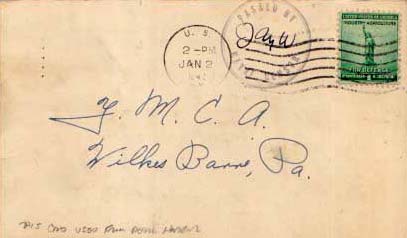 U. S.
2-PM
JAN 2
PASSED BY
UNITED STATES OF AMERICA
INDUSTRY AGRICULTURE
FOR DEFENSE
Y. M. C. A.
Wilkes Barre, Pa.
THIS CARD USED FROM PEARL HARBOR